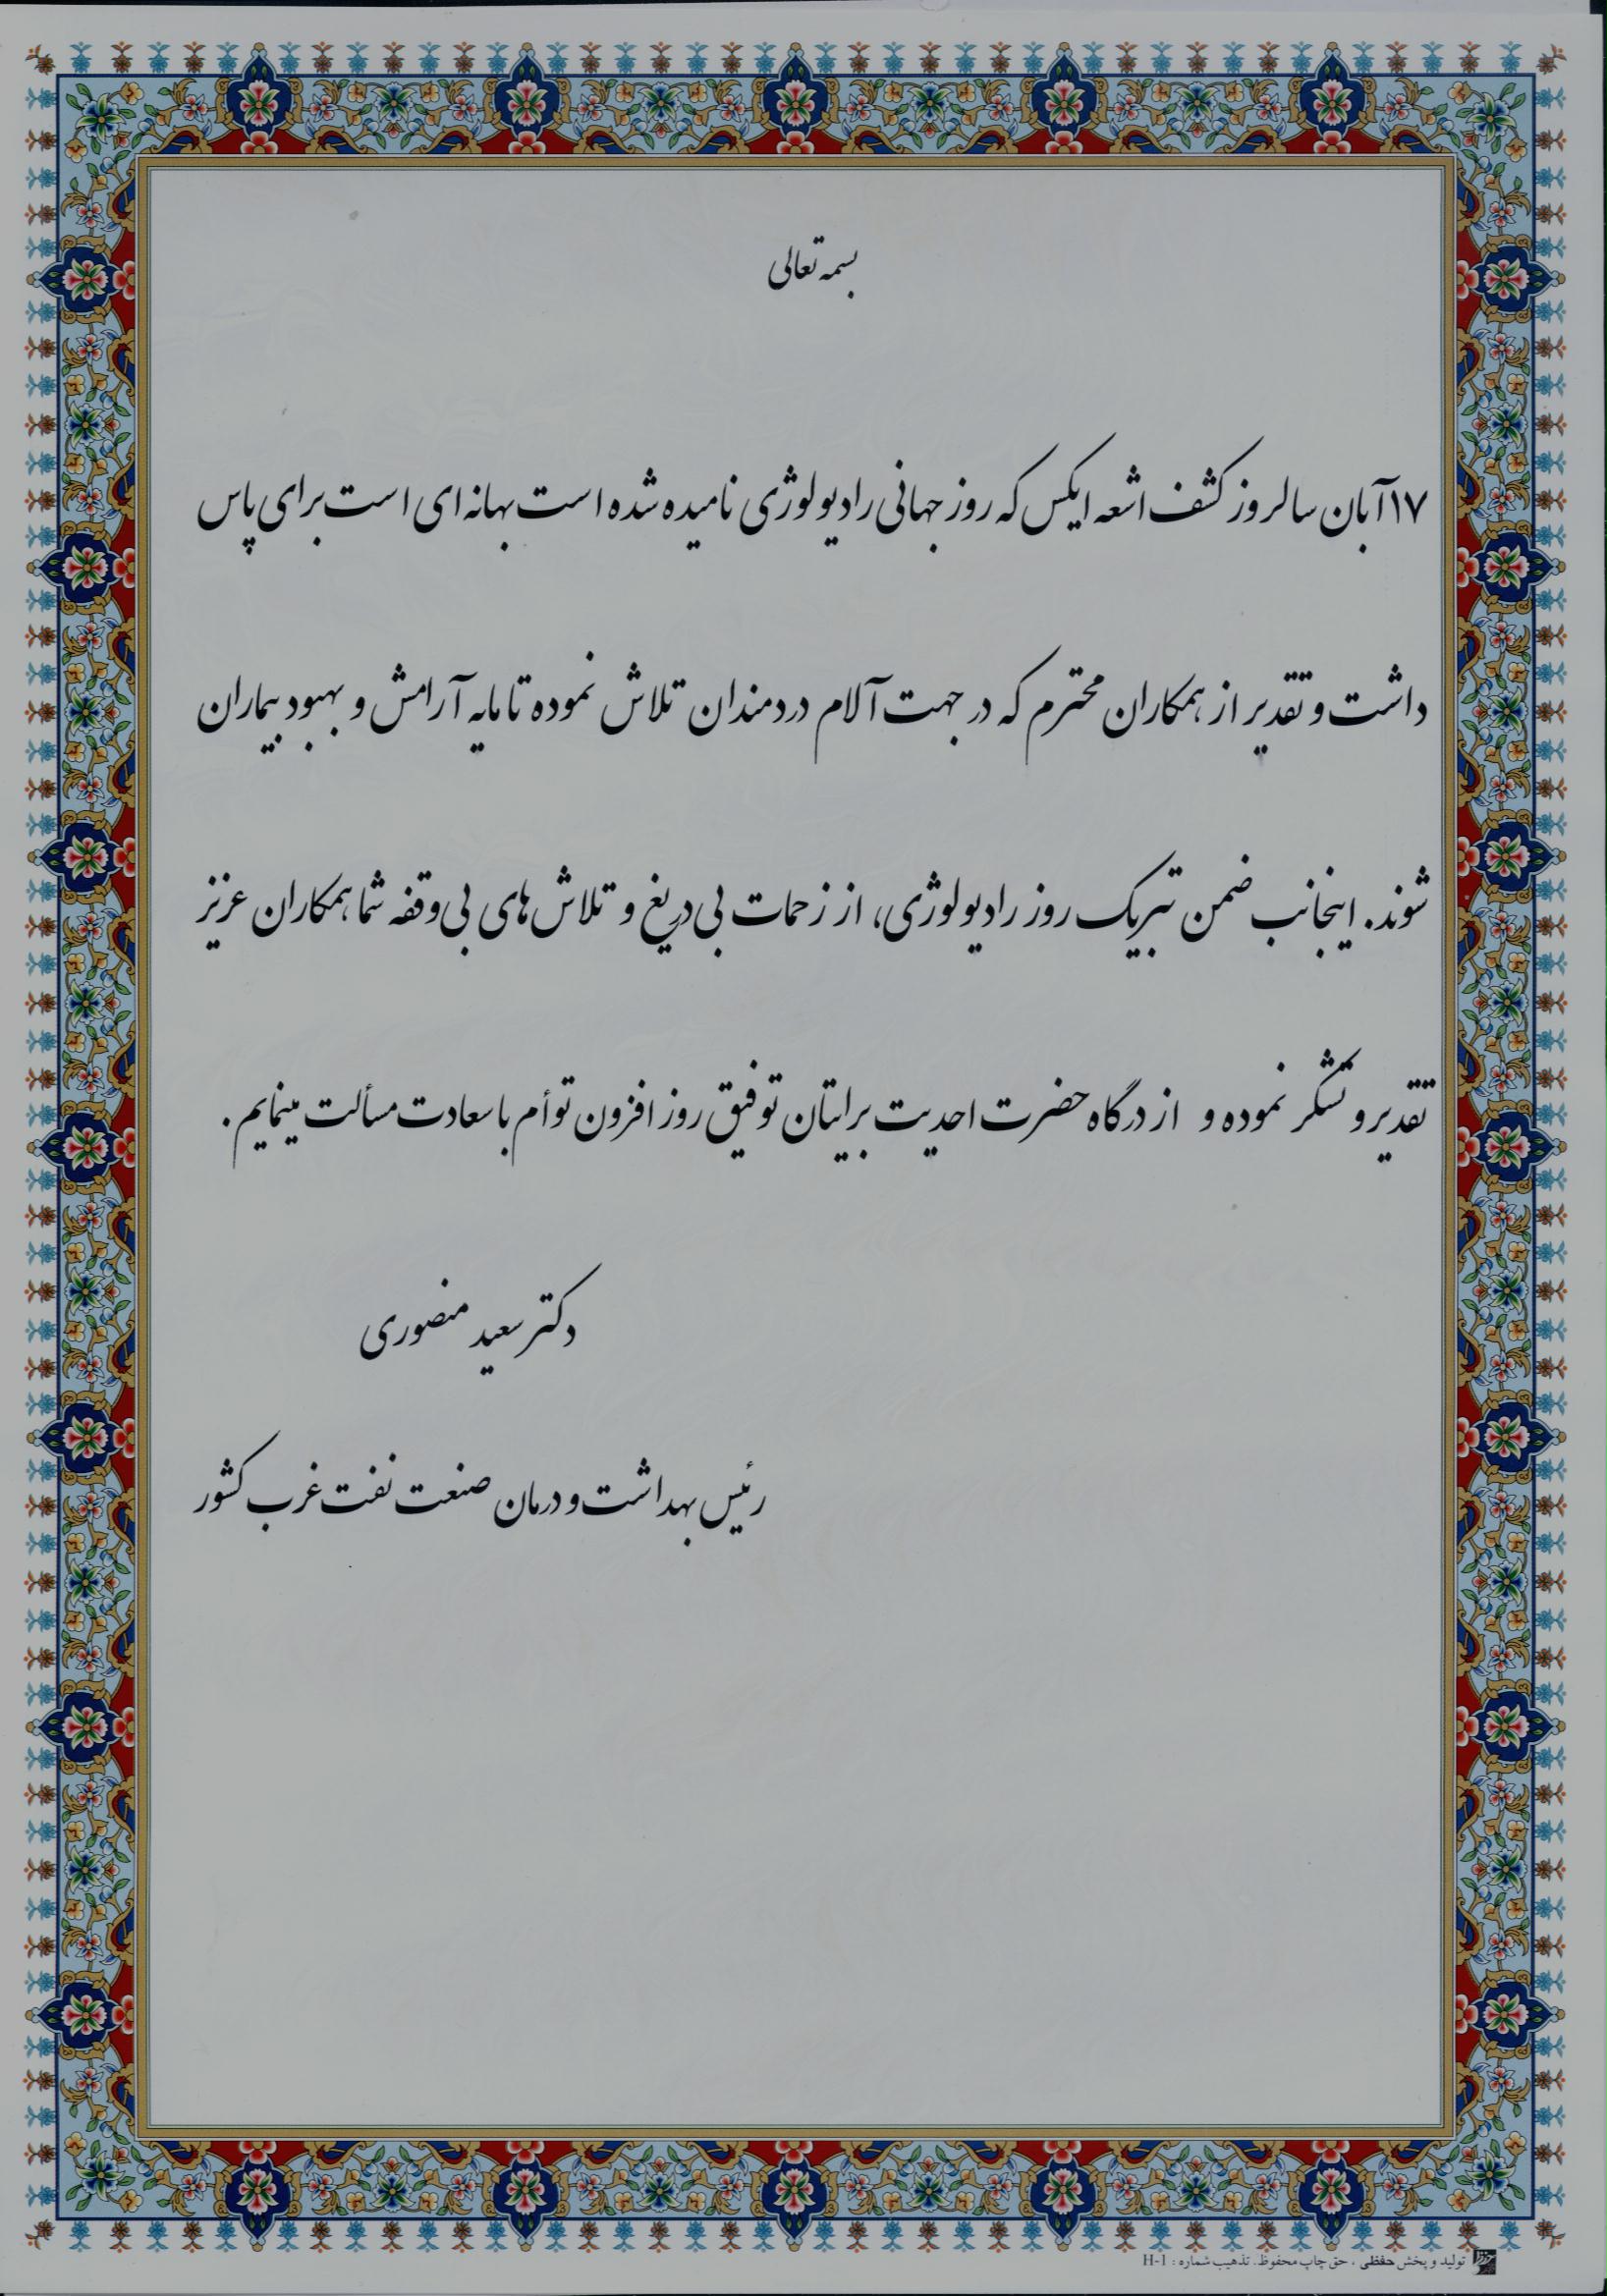 بسمه تعالی
۱۷ آبان سالروز کشف اشعه ایکس که روز جهانی رادیولوژی نامیده شده است بهانه ای است برای پاس
داشت و تقدیر از همکاران محترم که در جهت آلام دردمندان تلاش نموده تا مایه آرامش و بهبود بیماران
شوند. اینجانب ضمن تبریک روز رادیولوژی، از زحمات بی دریغ و تلاش های بی وقفه شما همکاران عزیز
تقدیر و تشکر نموده و از درگاه حضرت احدیت برایتان توفیق روز افزون توأم با سعادت مسألت مینمایم.
دکتر سعید منصوری
رئیس بهداشت و درمان صنعت نفت غرب کشور
تولید و پخش حفظی، حق چاپ محفوظ. تذهیب شماره: H-1